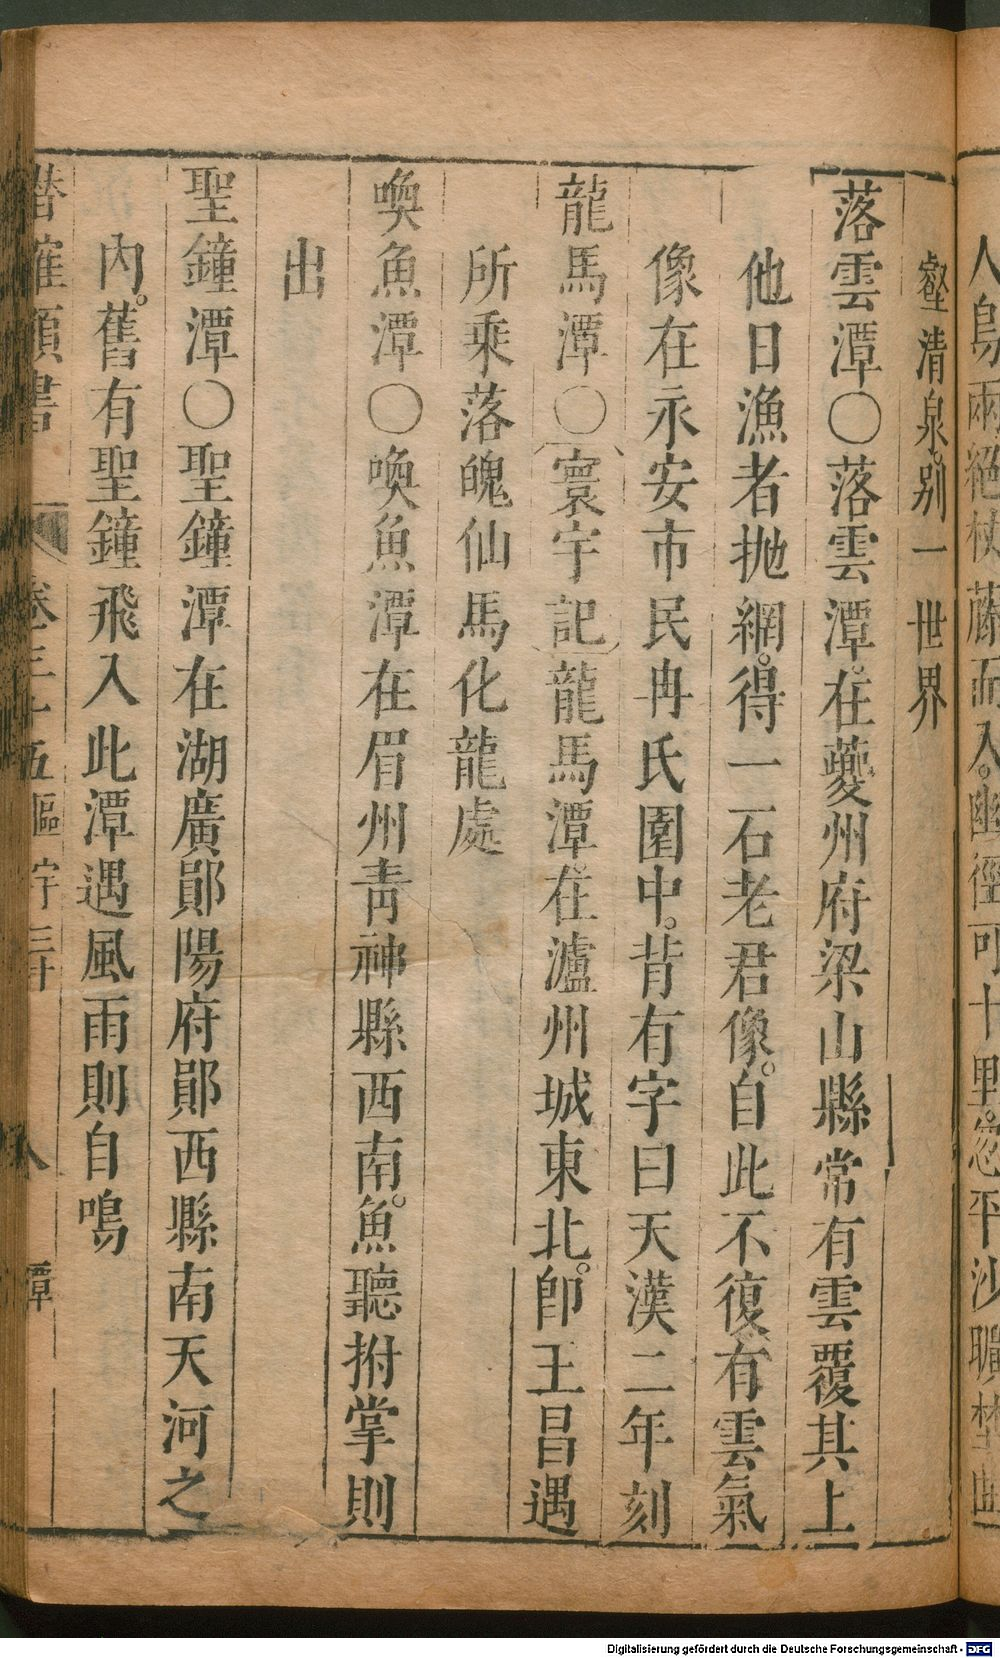 人鳥兩絕杖藤而入。幽徑可十里。忽平沙曠埜曲
壑清泉。別一世界
落雲潭〇落雲潭。在夔州府梁山縣常有雲覆其上
他日漁者抛網。得一石老君像。自此不復有雲氣
像在永安市民冉氏園中。背有字曰天漢二年刻
龍馬潭〇寰宇記龍馬潭。在瀘州城東北。卽王昌遇
所乘落魄仙馬化龍處
喚魚潭〇喚魚潭在眉州青神縣西南。魚聽拊掌則
出
聖鐘潭〇聖鐘潭在湖廣鄖陽府鄖西縣南天河之
內。舊有聖鐘飛入此潭遇風雨則自鳴
潛確類書 卷三十五 區宇三十 八 潭
Digitalisierung gefördert durch die Deutsche Forschungsgemeinschaft - DFG